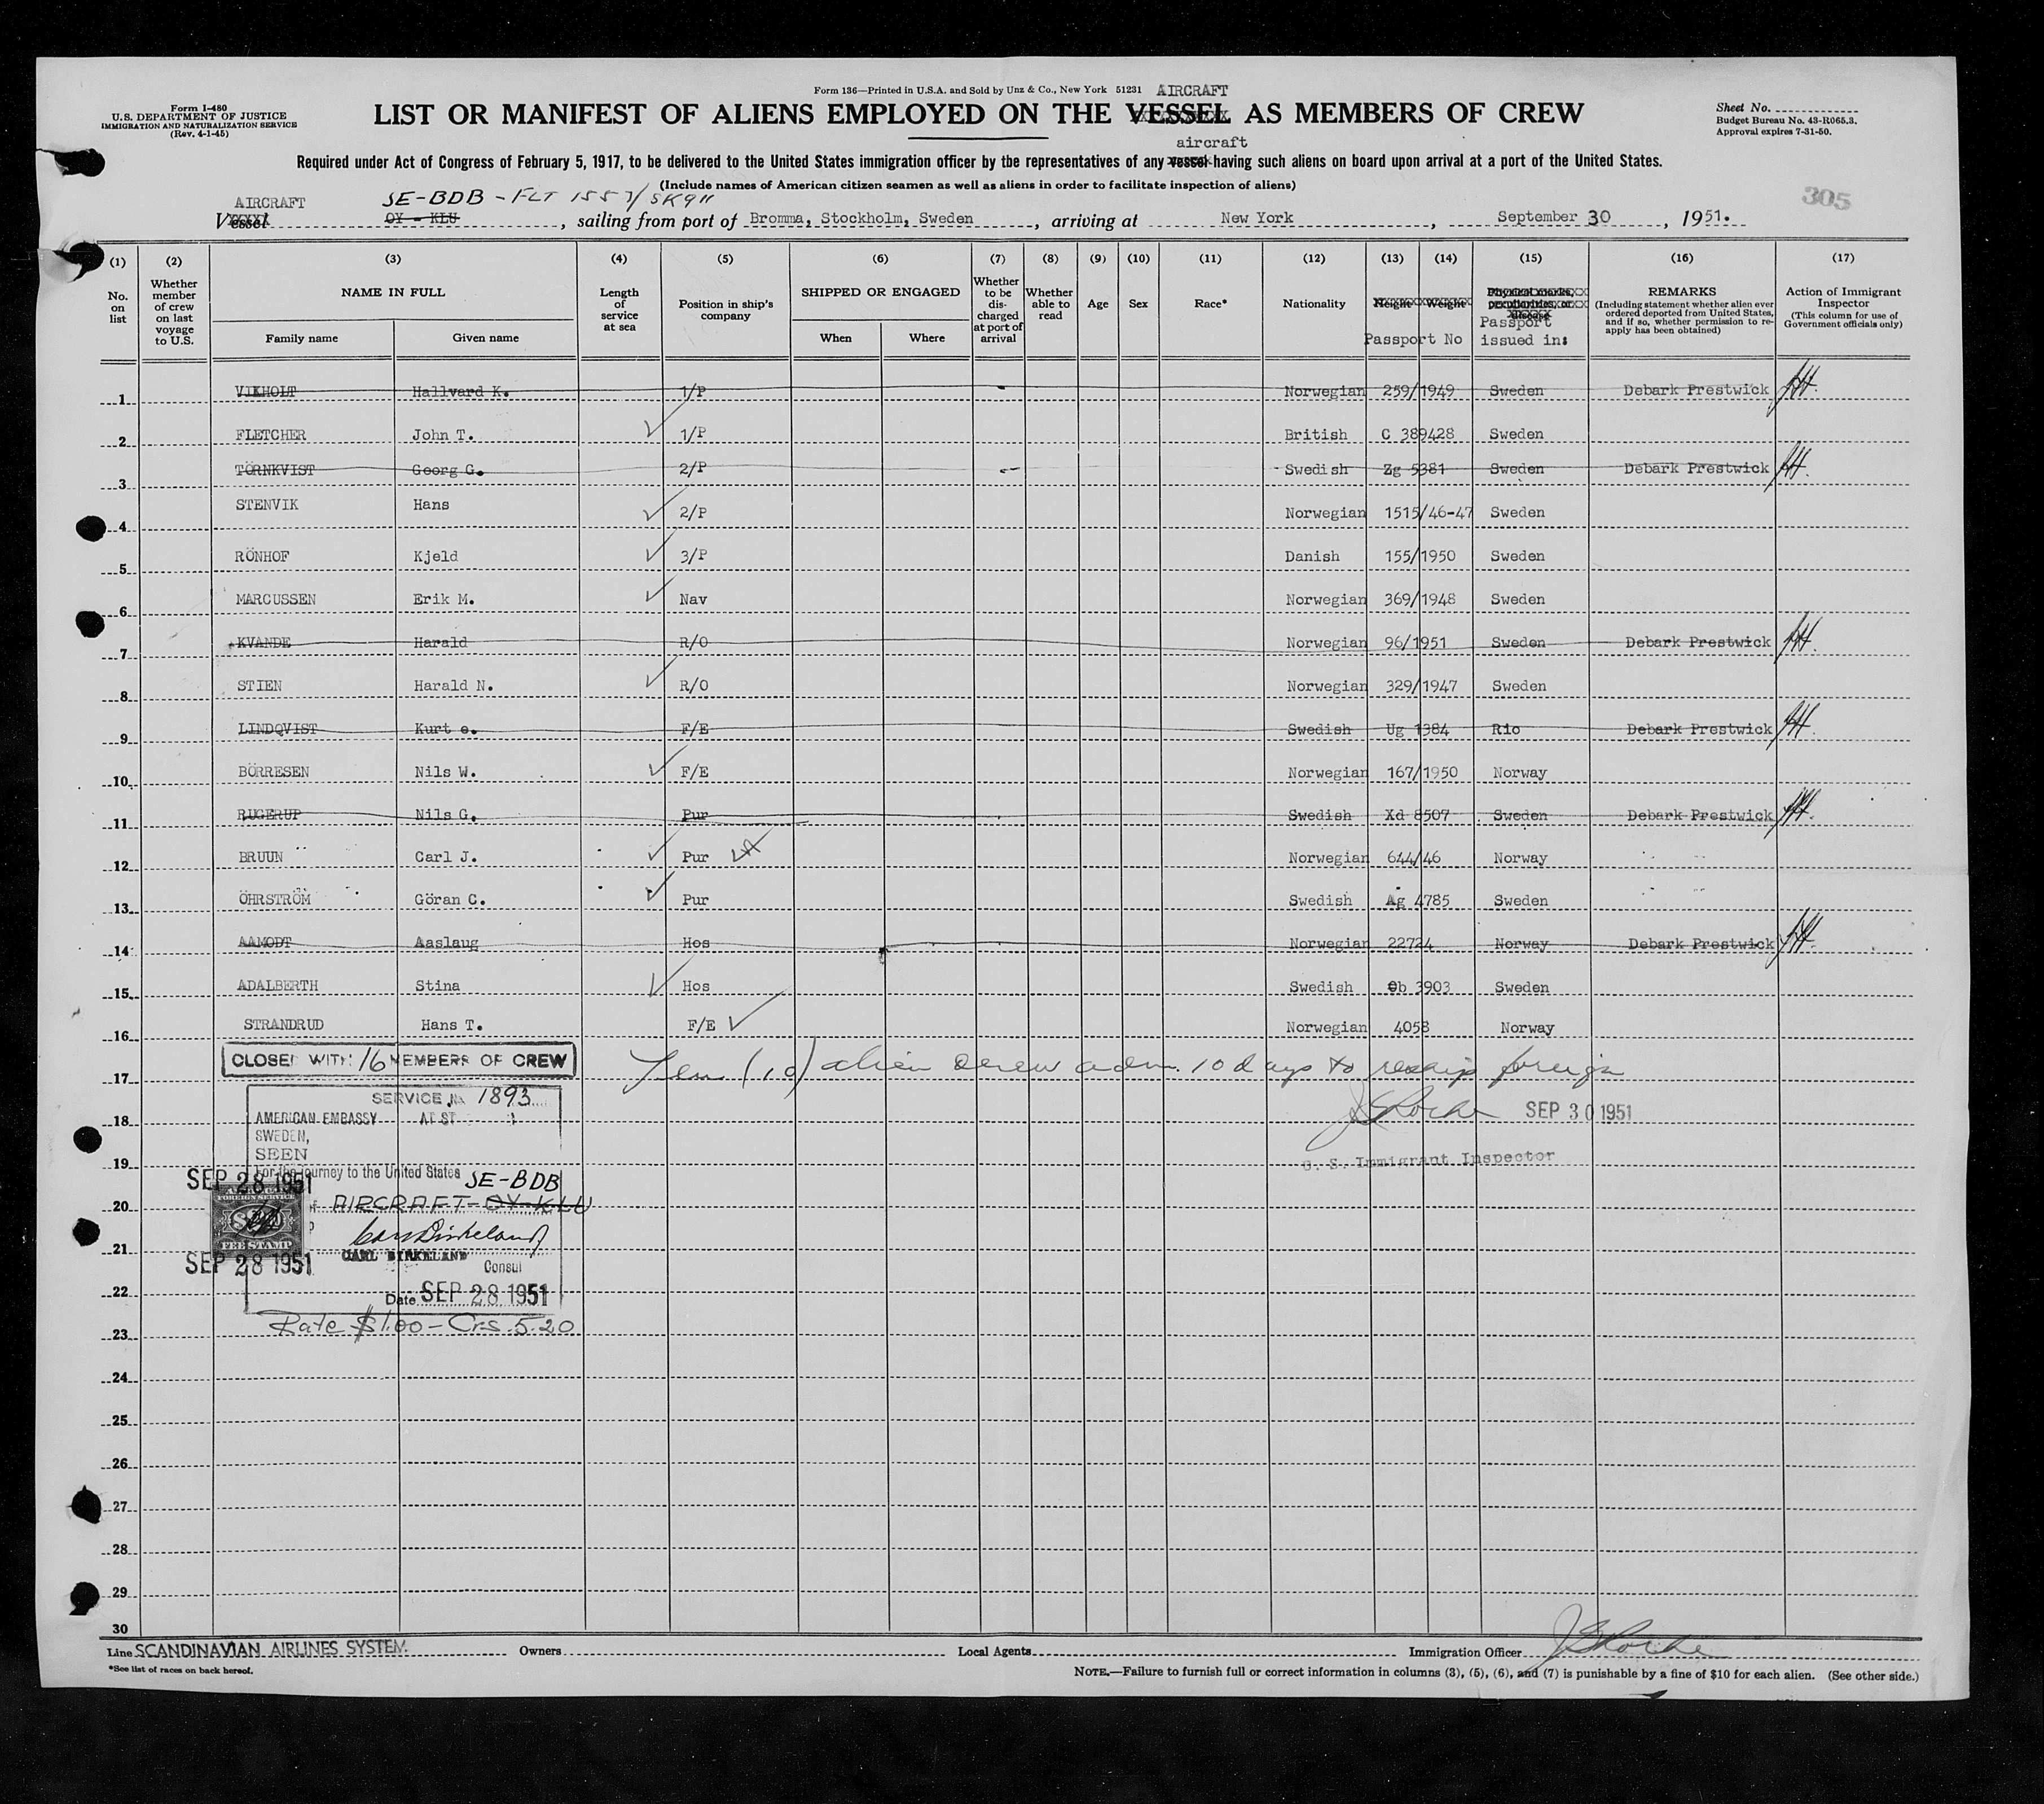 Form 136—Printed in U.S.A. and Sold by Unz & Co., New York 51231 AIRCRAFT
Form I-480
U.S. DEPARTMENT OF JUSTICE
IMMIGRATION AND NATURALIZATION SERVICE
(Rev. 4-1-45)
LIST OR MANIFEST OF ALIENS EMPLOYED ON THE VESSEL AS MEMBERS OF CREW
Sheet No.
Budget Bureau No. 43-R065.3.
Approval expires 7-31-50.
aircraft
Required under Act of Congress of February 5, 1917, to be delivered to the United States immigration officer by the representatives of any vessel having such aliens on board upon arrival at a port of the United States.
(Include names of American citizen seamen as well as aliens in order to facilitate inspection of aliens)
305
AIRCRAFT SE-BDB - FLT 1557/SK911
Vessel OY - KLU, sailing from port of Bromma, Stockholm, Sweden, arriving at New York, September 30, 1951.
(1) (2) (3) (4) (5) (6) (7) (8) (9) (10) (11) (12) (13) (14) (15) (16) (17)
No. on list
Whether member of crew on last voyage to U.S.
NAME IN FULL
Family name Given name
Length of service at sea
Position in ship's company
SHIPPED OR ENGAGED
When Where
Whether to be discharged at port of arrival
Whether able to read
Age
Sex
Race*
Nationality
Height Weight
Passport No
Physical marks, peculiarities, or disease
Passport issued in:
REMARKS
(Including statement whether alien ever ordered deported from United States, and if so, whether permission to reapply has been obtained)
Action of Immigrant Inspector
(This column for use of Government officials only)
1 VIKHOLT Hallvard K. 1/P Norwegian 259/1949 Sweden Debark Prestwick
2 FLETCHER John T. 1/P British C 389428 Sweden
3 TÖRNKVIST Georg G. 2/P Swedish Zg 5381 Sweden Debark Prestwick
4 STENVIK Hans 2/P Norwegian 1515/46-47 Sweden
5 RÖNHOF Kjeld 3/P Danish 155/1950 Sweden
6 MARCUSSEN Erik M. Nav Norwegian 369/1948 Sweden
7 KVANDE Harald R/O Norwegian 96/1951 Sweden Debark Prestwick
8 STIEN Harald N. R/O Norwegian 329/1947 Sweden
9 LINDQVIST Kurt e. F/E Swedish Ug 1384 Rio Debark Prestwick
10 BÖRRESEN Nils W. F/E Norwegian 167/1950 Norway
11 RUGERUP Nils G. Pur Swedish Xd 8507 Sweden Debark Prestwick
12 BRUUN Carl J. Pur Norwegian 644/46 Norway
13 ÖHRSTRÖM Göran C. Pur Swedish Ag 4785 Sweden
14 AAMODT Aaslaug Hos Norwegian 22724 Norway Debark Prestwick
15 ADALBERTH Stina Hos Swedish Ob 3903 Sweden
16 STRANDRUD Hans T. F/E Norwegian 4058 Norway
CLOSED WITH 16 MEMBERS OF CREW
17 Ten (10) alien crew adm. 10 days to reship foreign
SERVICE No. 1893
AMERICAN EMBASSY AT ST
18 JSRoche SEP 30 1951
SWEDEN,
SEEN
19 For the journey to the United States
U. S. Immigrant Inspector
SEP 28 1951 SE-BDB
FOREIGN SERVICE
20 AIRCRAFT - OY-KLU
Carl Birkeland
FEE STAMP
21 CARL BIRKELAND
SEP 28 1951
Consul
22 Date SEP 28 1951
Rate $1.00 - Crs. 5.20
23
24
25
26
27
28
29
30
Line SCANDINAVIAN AIRLINES SYSTEM. Owners Local Agents Immigration Officer JSRoche
*See list of races on back hereof.
NOTE.—Failure to furnish full or correct information in columns (3), (5), (6), and (7) is punishable by a fine of $10 for each alien. (See other side.)